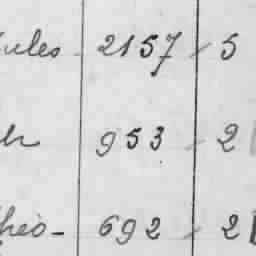 ules 2157 - 5
953 - 2
heo - 692 - 2